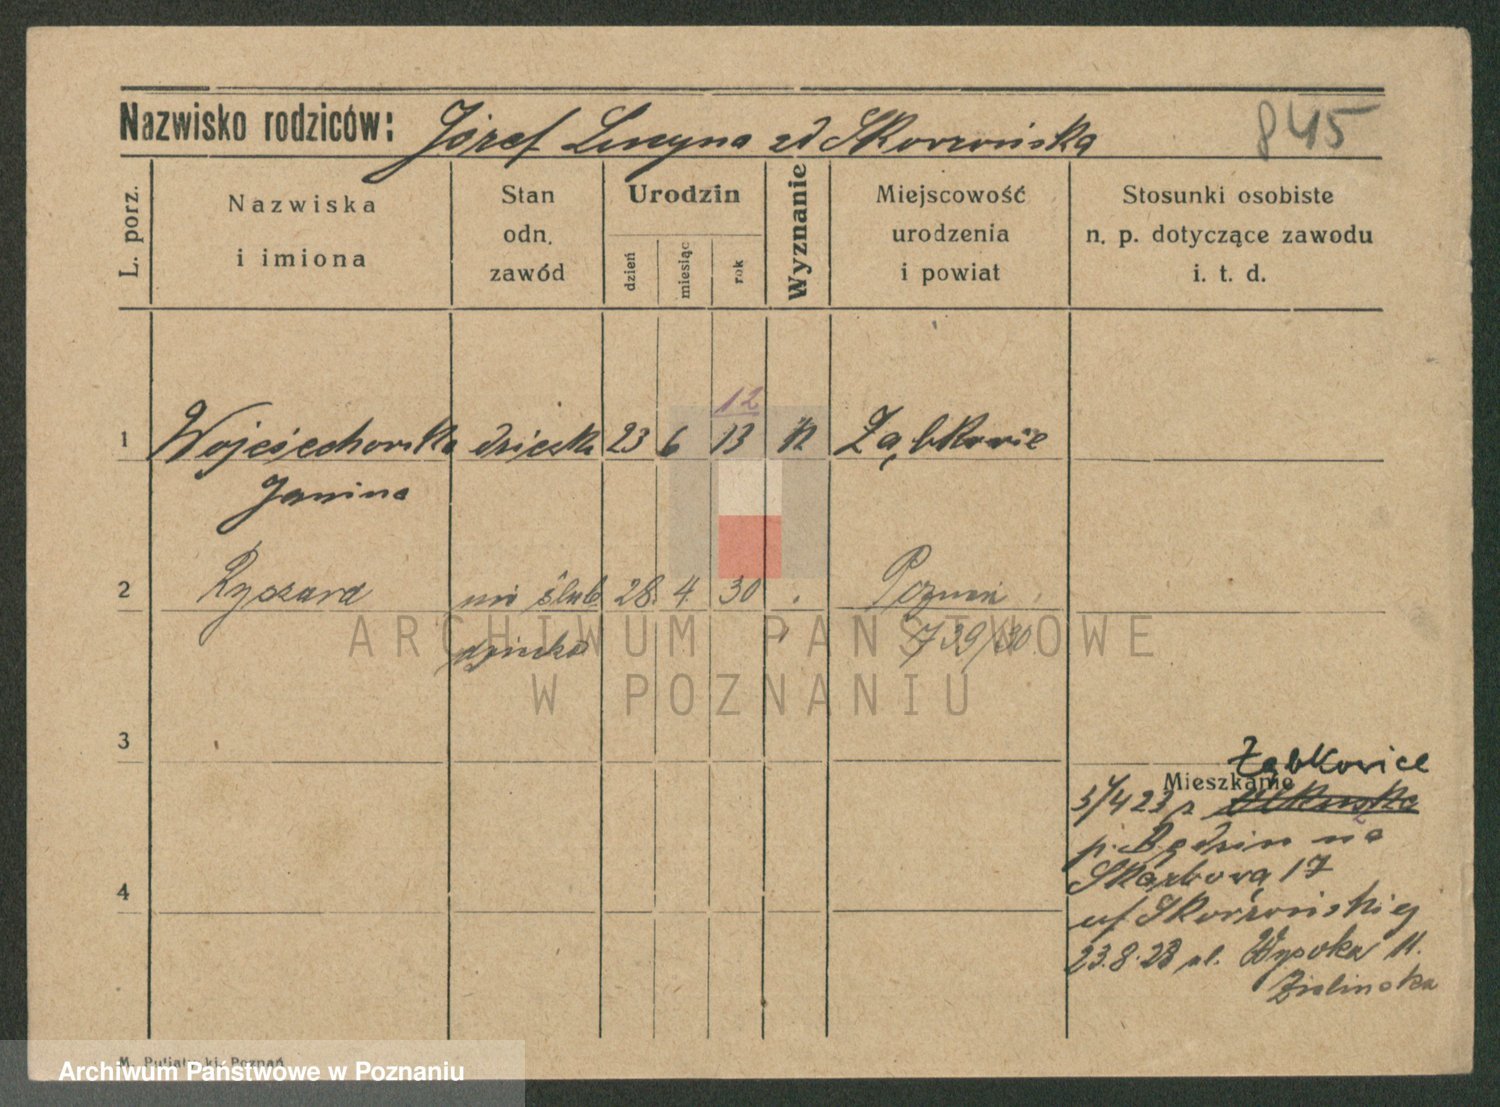 845
Nazwisko rodziców: Józef Lucyna zd Skorzońska
L. porz.
Nazwiska i imiona
Stan odn. zawód
Urodzin
dzień
miesiąc
rok
Wyznanie
Miejscowość urodzenia i powiat
Stosunki osobiste n. p. dotyczące zawodu i. t. d.
12
1 Wojciechowska dziecko 23 6 13 Ząbkowic
Janina
2 Ryszard nie ślub 28. 4. 30 Poznań
dziecko 739/30
ARCHIWUM PAŃSTWOWE
W POZNANIU
3
Ząbkowice
Mieszkanie
5/4 23 z Olkuska
p. Będzin na
Skarbową 17
uf Skorzońskiej
4
23.8.23 ul. Wysoka 11.
Zielinska
M. Putiatycki, Poznań
Archiwum Państwowe w Poznaniu